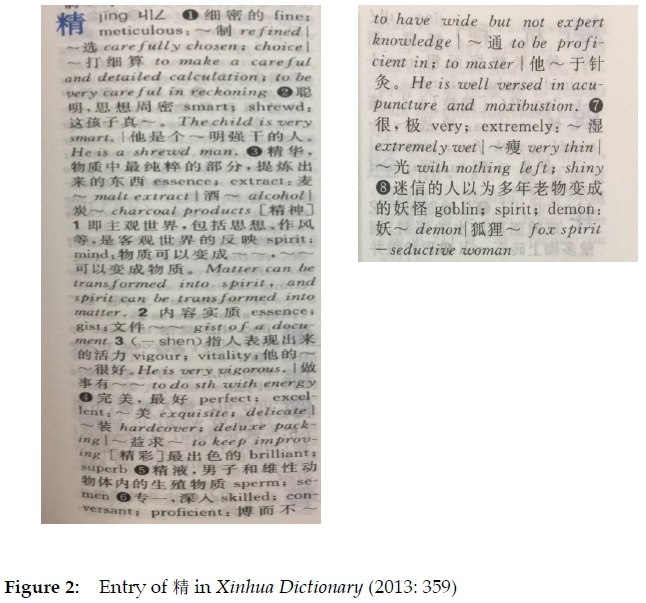 精 jīng ㄐㄧㄥ ❶细密的 fine;
meticulous: ~制 refined|
~选 carefully chosen; choice|
~打细算 to make a careful
and detailed calculation; to be
very careful in reckoning ❷聪
明,思想周密 smart; shrewd:
这孩子真~。The child is very
smart.|他是个~明强干的人。
He is a shrewd man. ❸精华,
物质中最纯粹的部分,提炼出
来的东西 essence; extract: 麦
~ malt extract|酒~ alcohol|
炭~ charcoal products [精神]
1 即主观世界,包括思想、作风
等,是客观世界的反映 spirit;
mind: 物质可以变成~~,~~
可以变成物质。Matter can be
transformed into spirit, and
spirit can be transformed into
matter. 2 内容实质 essence;
gist: 文件~~ gist of a docu-
ment 3 (-shen)指人表现出来
的活力 vigour; vitality: 他的~
~很好。He is very vigorous.|做
事有~~ to do sth with energy
❹完美,最好 perfect; excel-
lent: ~美 exquisite; delicate|
~装 hardcover; deluxe pack-
ing|~益求~ to keep improv-
ing [精彩]最出色的 brilliant;
superb ❺精液,男子和雄性动
物体内的生殖物质 sperm; se-
men ❻专一,深入 skilled; con-
versant; proficient: 博而不~
to have wide but not expert
knowledge|~通 to be profi-
cient in; to master|他~于针
灸。He is well versed in acu-
puncture and moxibustion. ❼
很,极 very; extremely: ~湿
extremely wet|~瘦 very thin|
~光 with nothing left; shiny
❽迷信的人以为多年老物变成
的妖怪 goblin; spirit; demon:
妖~ demon|狐狸~ fox spirit
—seductive woman
Figure 2: Entry of 精 in Xinhua Dictionary (2013: 359)